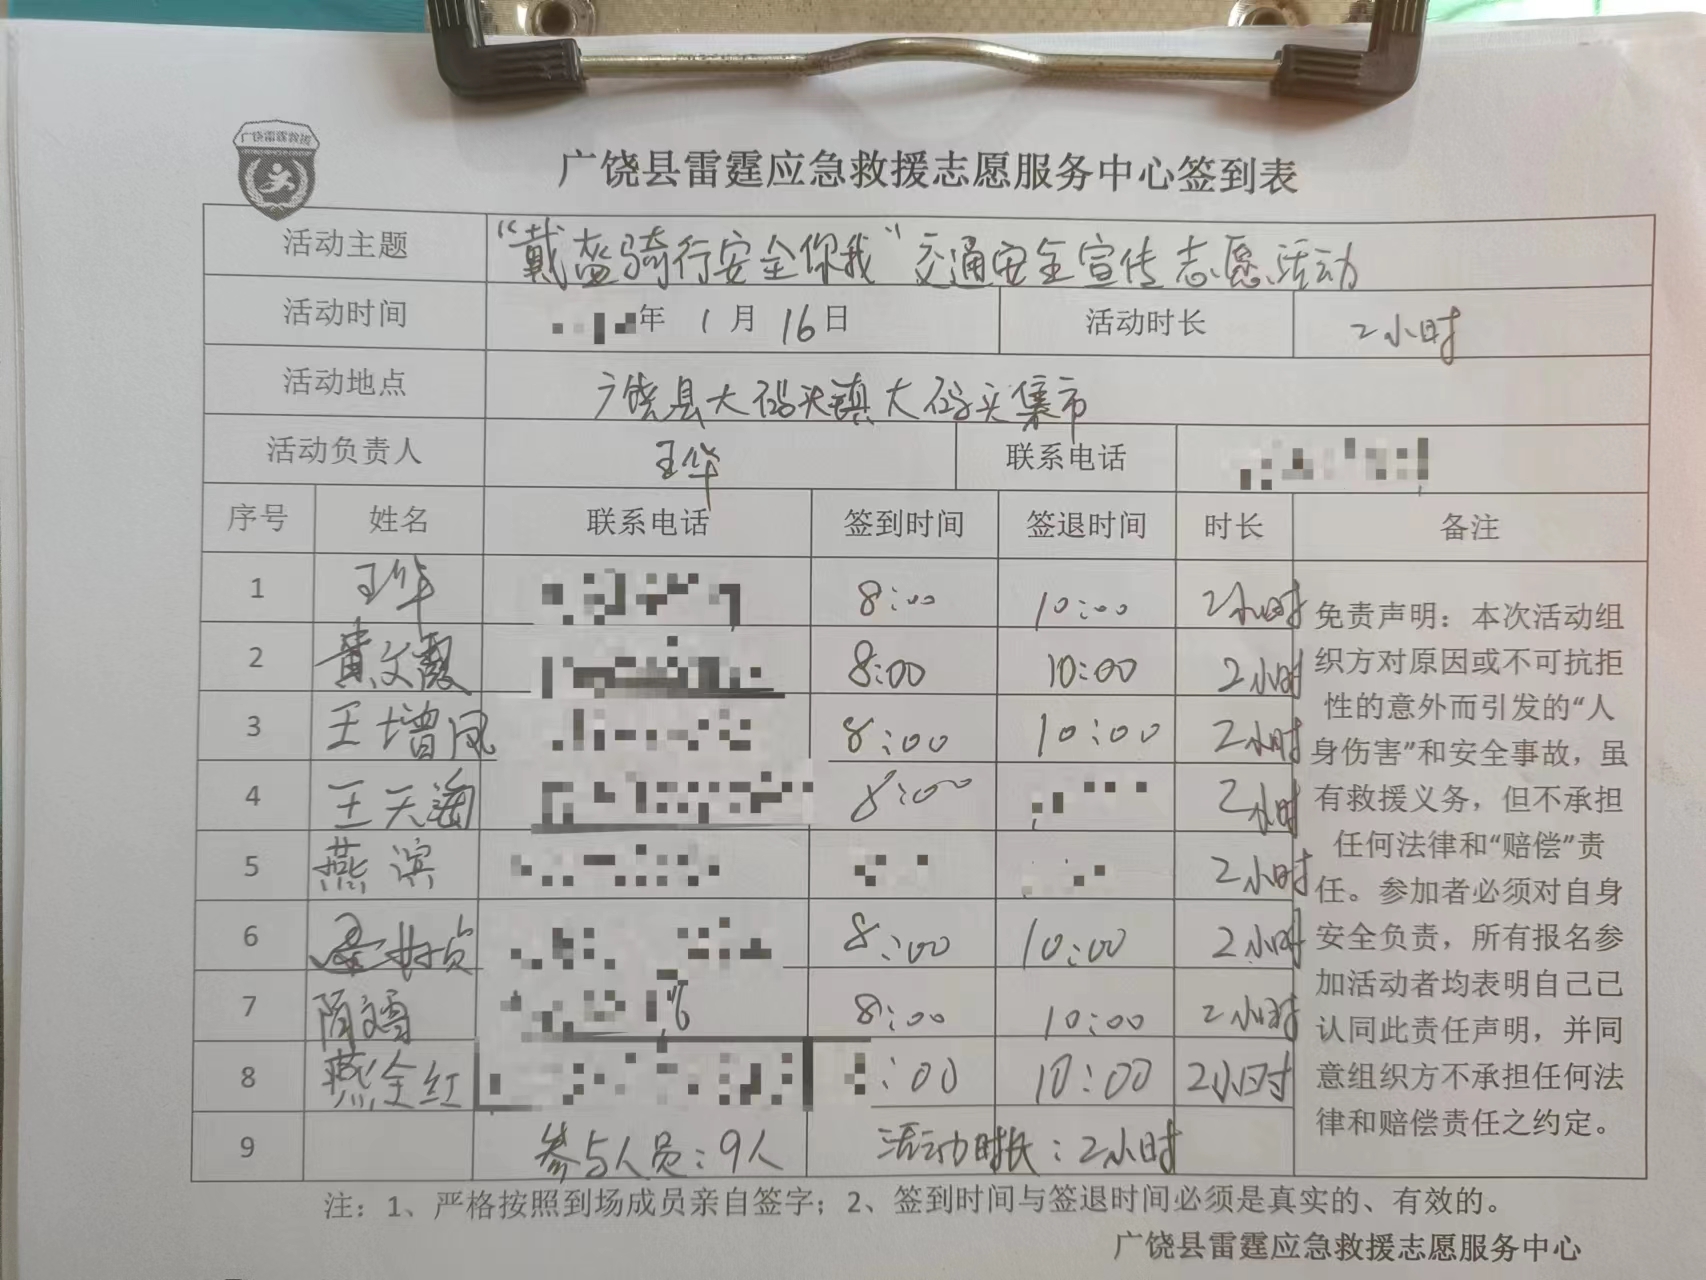 广饶雷霆救援
广饶县雷霆应急救援志愿服务中心签到表
活动主题 “戴盔骑行安全你我”交通安全宣传志愿活动
活动时间 年 1月 16日 活动时长 2小时
活动地点 广饶县大码头镇大码头集市
活动负责人 王华 联系电话
序号 姓名 联系电话 签到时间 签退时间 时长 备注
1 王华 8:00 10:00 2小时
2 黄文霞 8:00 10:00 2小时
3 王增凤 8:00 10:00 2小时
4 王天海 8:00 2小时
5 燕滨 2小时
6 8:00 10:00 2小时
7 隋文霞 8:00 10:00 2小时
8 燕全红 :00 10:00 2小时
9 参与人员:9人 活动时长:2小时
免责声明：本次活动组
织方对原因或不可抗拒
性的意外而引发的“人
身伤害”和安全事故，虽
有救援义务，但不承担
任何法律和“赔偿”责
任。参加者必须对自身
安全负责，所有报名参
加活动者均表明自己已
认同此责任声明，并同
意组织方不承担任何法
律和赔偿责任之约定。
注：1、严格按照到场成员亲自签字；2、签到时间与签退时间必须是真实的、有效的。
广饶县雷霆应急救援志愿服务中心